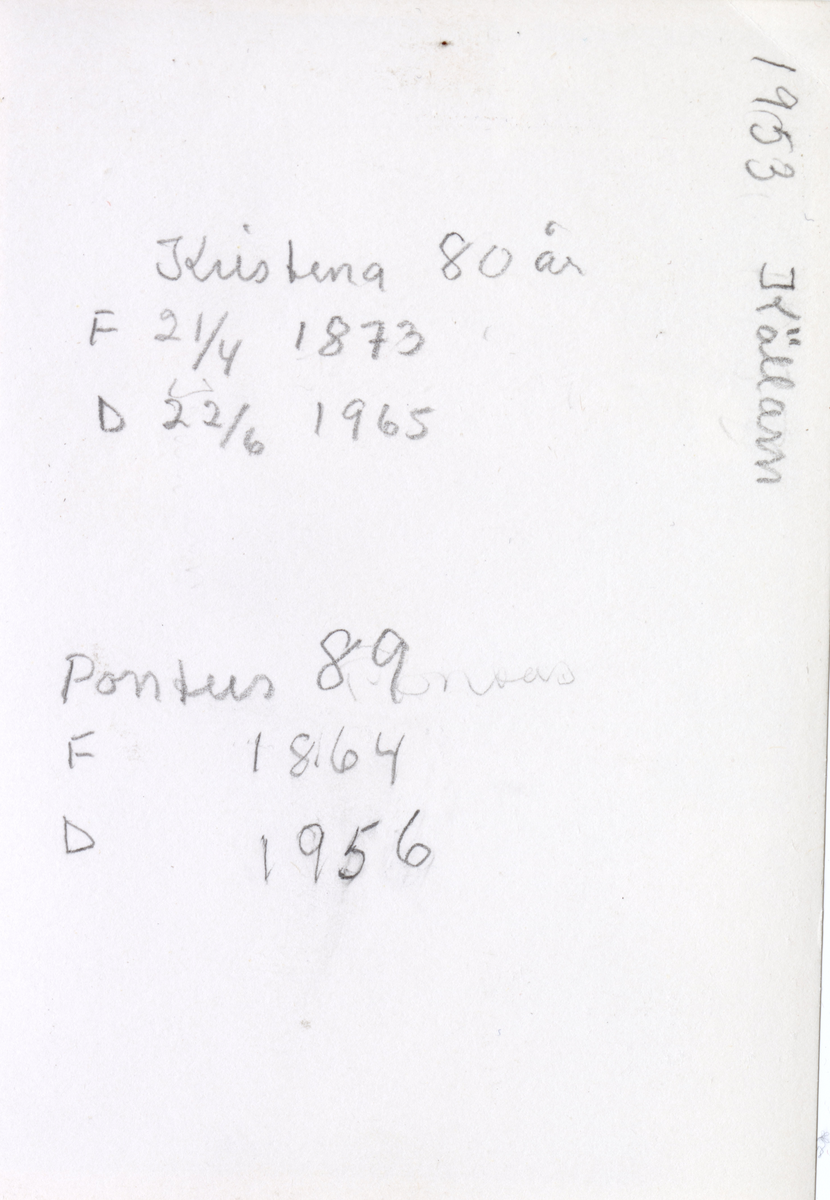 Kristina 80 år
F 21/4 1873
D 22/6 1965
Pontus 89
F 1864
D 1956
1953 Källarn